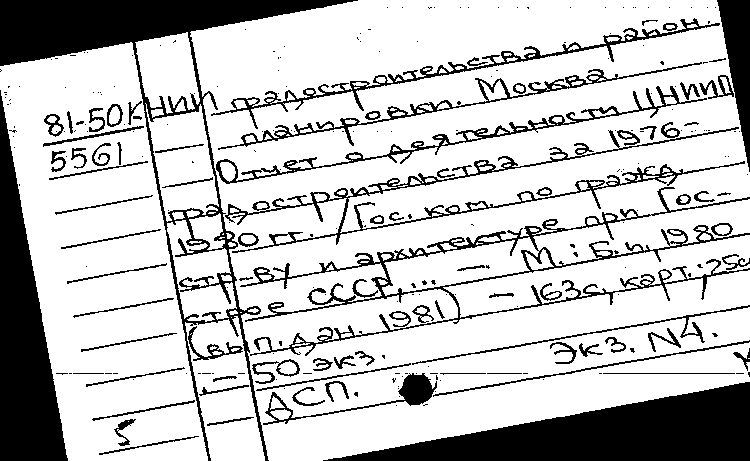 81-50К НИИП градостроительства и район.
5561 планировки. Москва.
Отчет о деятельности ЦНИИП
градостроительства за 1976-
1980 гг. / Гос. ком. по гражд.
стр-ву и архитектуре при Гос-
строе СССР,... — М.: Б.и, 1980
(вып. дан. 1981) — 163с, карт.; 25с
. — 50 экз.
ДСП. Экз. N4.
5